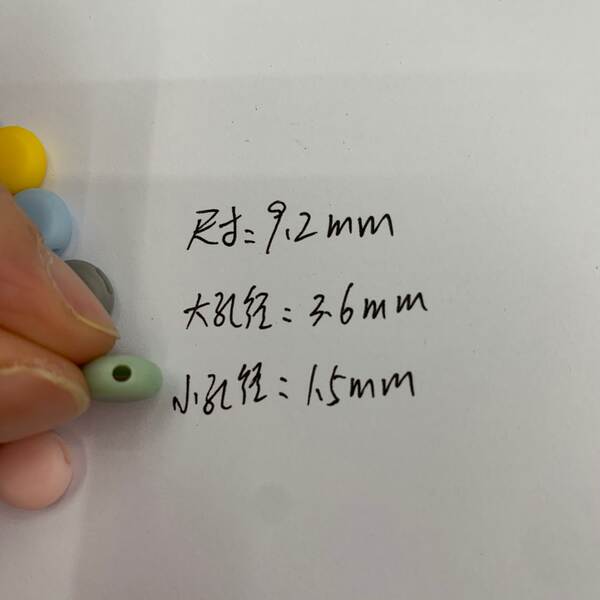 尺寸=9.2mm
大孔径=3.6mm
小孔径=1.5mm